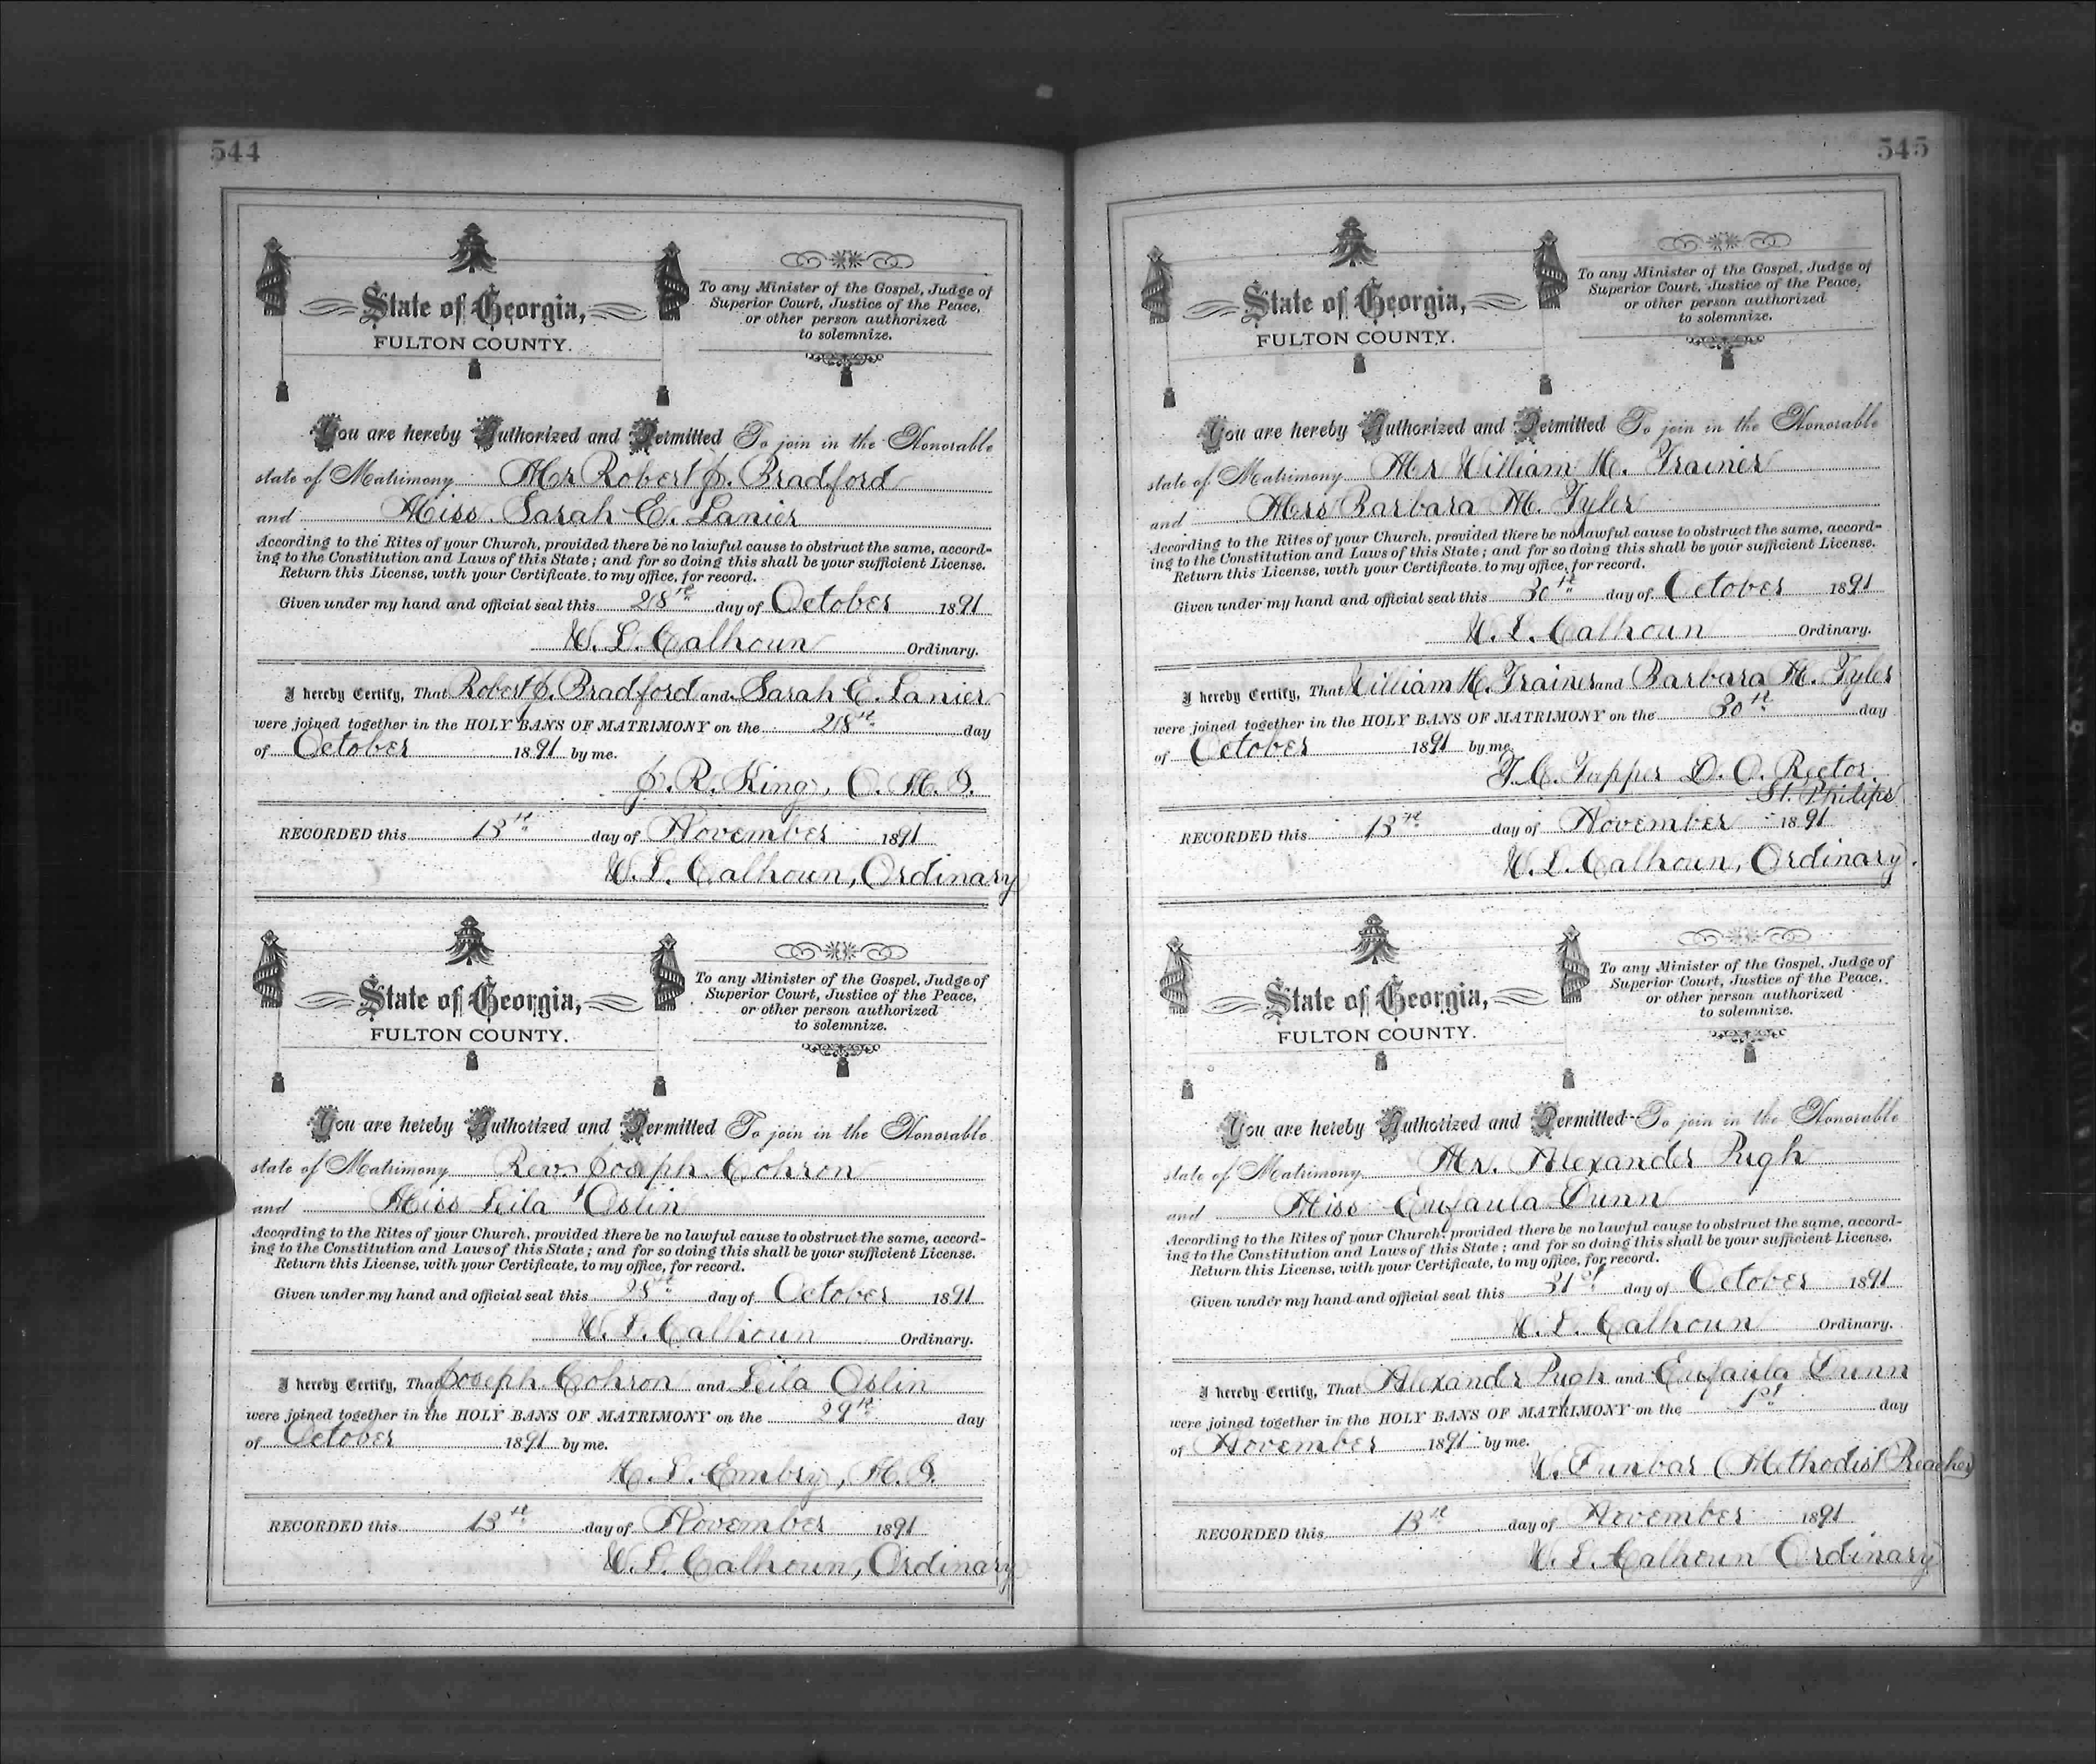 544
State of Georgia,
FULTON COUNTY.
To any Minister of the Gospel, Judge of
Superior Court, Justice of the Peace,
or other person authorized
to solemnize.
You are hereby Authorized and Permitted To join in the Honorable
state of Matrimony Mr Robert J. Bradford
and Miss Sarah E. Lanier
According to the Rites of your Church, provided there be no lawful cause to obstruct the same, accord-
ing to the Constitution and Laws of this State; and for so doing this shall be your sufficient License.
Return this License, with your Certificate, to my office, for record.
Given under my hand and official seal this 28th day of October 1891
W. L. Calhoun Ordinary.
I hereby Certify, That Robert J. Bradford and Sarah E. Lanier
were joined together in the HOLY BANS OF MATRIMONY on the 28th day
of October 1891 by me.
J. R. King, O. M. G.
RECORDED this 13th day of November 1891
W. L. Calhoun, Ordinary
State of Georgia,
FULTON COUNTY.
To any Minister of the Gospel, Judge of
Superior Court, Justice of the Peace,
or other person authorized
to solemnize.
You are hereby Authorized and Permitted To join in the Honorable
state of Matrimony Rev. Joseph Cohron
and Miss Leila Oslin
According to the Rites of your Church, provided there be no lawful cause to obstruct the same, accord-
ing to the Constitution and Laws of this State; and for so doing this shall be your sufficient License.
Return this License, with your Certificate, to my office, for record.
Given under my hand and official seal this 28th day of October 1891
W. L. Calhoun Ordinary.
I hereby Certify, That Joseph Cohron and Leila Oslin
were joined together in the HOLY BANS OF MATRIMONY on the 29th day
of October 1891 by me.
L. Embry, M. G.
RECORDED this 13th day of November 1891
W. L. Calhoun, Ordinary
545
State of Georgia,
FULTON COUNTY.
To any Minister of the Gospel, Judge of
Superior Court, Justice of the Peace,
or other person authorized
to solemnize.
You are hereby Authorized and Permitted To join in the Honorable
state of Matrimony Mr William H. Trainer
and Mrs Barbara M. Tyler
According to the Rites of your Church, provided there be no lawful cause to obstruct the same, accord-
ing to the Constitution and Laws of this State; and for so doing this shall be your sufficient License.
Return this License, with your Certificate, to my office, for record.
Given under my hand and official seal this 30th day of October 1891
W. L. Calhoun Ordinary.
I hereby Certify, That William H. Trainer and Barbara M. Tyler
were joined together in the HOLY BANS OF MATRIMONY on the 30th day
of October 1891 by me.
T. C. Tupper D. D. Rector
St. Philips
RECORDED this 13th day of November 1891
W. L. Calhoun, Ordinary.
State of Georgia,
FULTON COUNTY.
To any Minister of the Gospel, Judge of
Superior Court, Justice of the Peace,
or other person authorized
to solemnize.
You are hereby Authorized and Permitted To join in the Honorable
state of Matrimony Mr. Alexander Pugh
and Miss Eufaula Dunn
According to the Rites of your Church, provided there be no lawful cause to obstruct the same, accord-
ing to the Constitution and Laws of this State; and for so doing this shall be your sufficient License.
Return this License, with your Certificate, to my office, for record.
Given under my hand and official seal this 31st day of October 1891
W. L. Calhoun Ordinary.
I hereby Certify, That Alexander Pugh and Eufaula Dunn
were joined together in the HOLY BANS OF MATRIMONY on the 1st day
of November 1891 by me.
W. Dunbar (Methodist Preacher)
RECORDED this 13th day of November 1891
W. L. Calhoun Ordinary